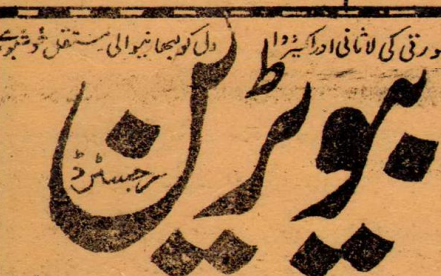 درتی کی لاثانی اور اکیز دا دل کو لبھانیوالی مستقل خوشبوئے
ہیوٹرین
رجسٹرڈ